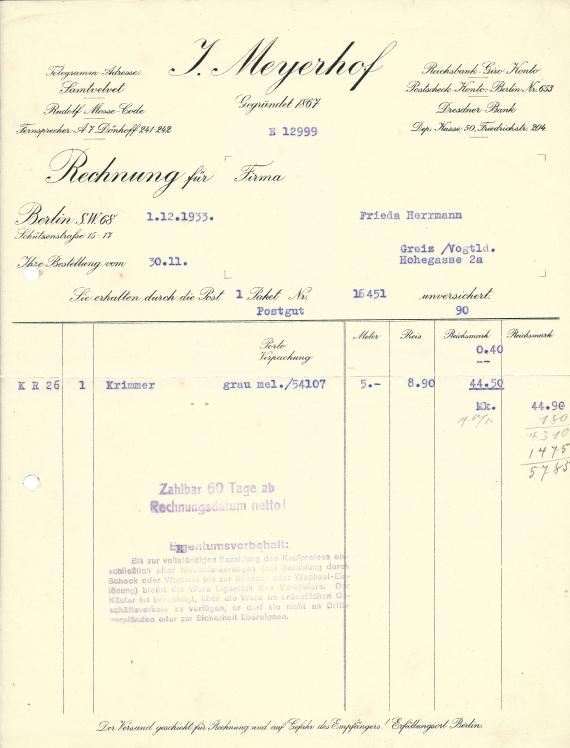 J. Meyerhof
Gegründet 1867
Telegramm-Adresse:
Samtvelvet
Rudolf Mosse-Code
Fernsprecher: A 7 Dönhoff 241-242
Reichsbank-Giro-Konto
Postscheck-Konto: Berlin Nr. 653
Dresdner Bank
Dep. Kasse 50, Friedrichstr. 204.
E 12999
Rechnung für Firma
Berlin S.W. 68 1.12.1933. Frieda Herrmann
Schützenstraße 15-17
Greiz /Vogtld.
Ihre Bestellung vom 30.11. Hohegasse 2a
Sie erhalten durch die Post 1 Paket Nr. 16451 unversichert.
Postgut 90
Meter Preis Reichsmark Reichsmark
Porto 0.40
Verpackung --
K R 26 1 Krimmer grau mel./54107 5.- 8.90 44.50
Mk. 44.90
180
4310
1475
5785
Zahlbar 60 Tage ab
Rechnungsdatum netto!
Eigentumsvorbehalt:
Bis zur vollständigen Bezahlung des Kaufpreises ein-
schließlich aller Nebenforderungen (bei Bezahlung durch
Scheck oder Wechsel bis zur Scheck- oder Wechsel-Ein-
lösung) bleibt die Ware Eigentum des Verkäufers. Der
Käufer ist berechtigt, über die Ware im ordentlichen Ge-
schäftsverkehr zu verfügen, er darf sie nicht an Dritte
verpfänden oder zur Sicherheit übereignen.
Der Versand geschieht für Rechnung und auf Gefahr des Empfängers! Erfüllungsort Berlin.